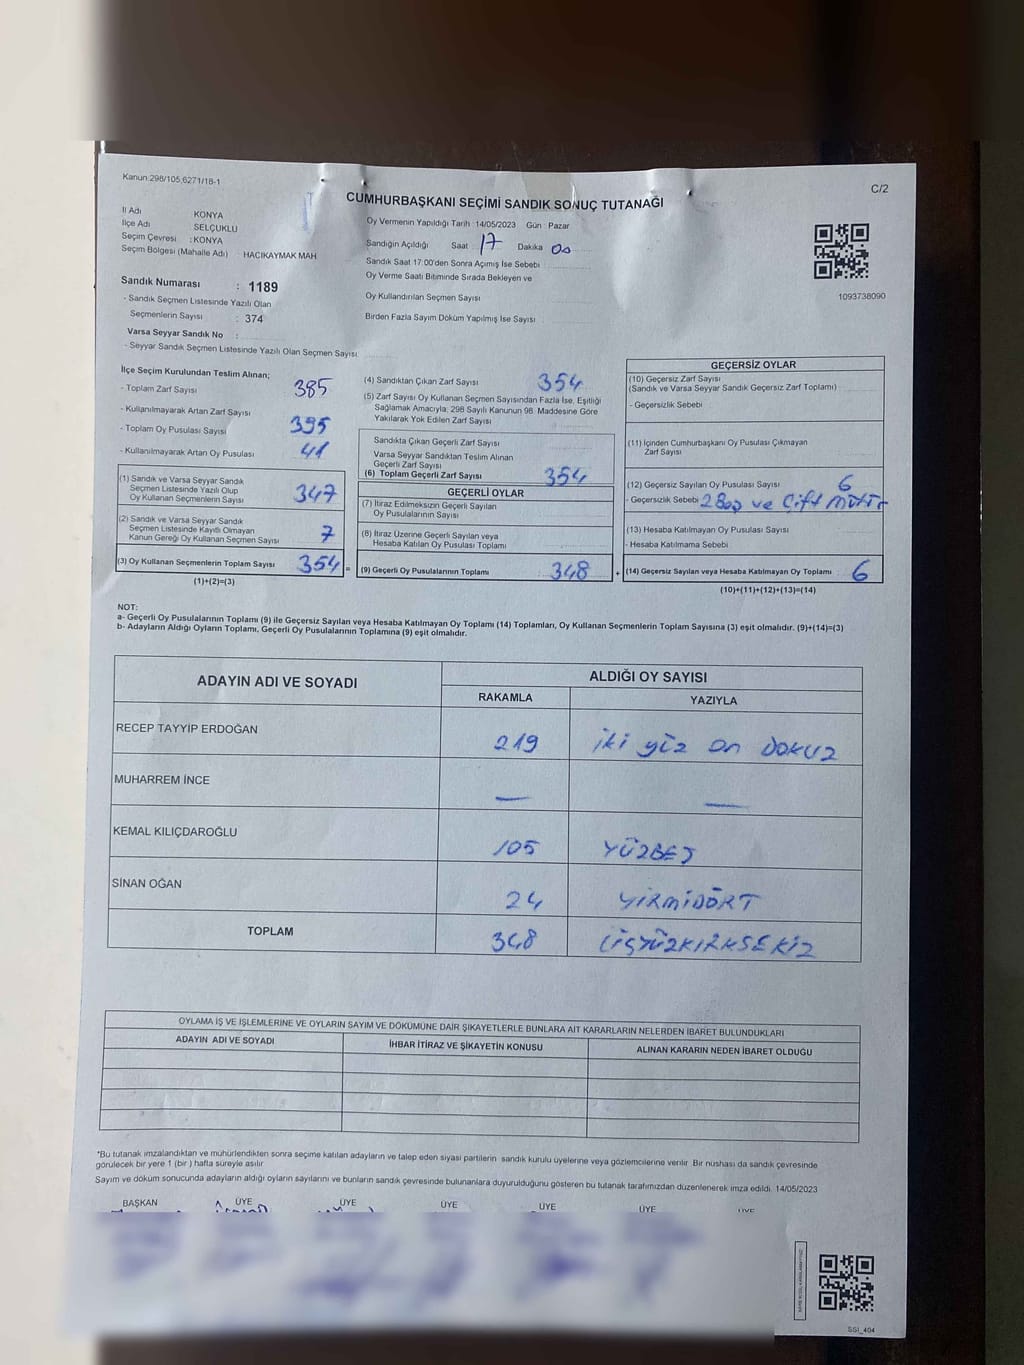 Kanun:298/105,6271/18-1
C/2
CUMHURBAŞKANI SEÇİMİ SANDIK SONUÇ TUTANAĞI
İl Adı KONYA
İlçe Adı SELÇUKLU
Seçim Çevresi : KONYA
Seçim Bölgesi (Mahalle Adı) HACIKAYMAK MAH
Oy Vermenin Yapıldığı Tarih : 14/05/2023 Gün : Pazar
Sandığın Açıldığı Saat 17 Dakika 00
Sandık Saat 17:00'den Sonra Açımış İse Sebebi
Oy Verme Saati Bitiminde Sırada Bekleyen ve
Oy Kullandırılan Seçmen Sayısı
Birden Fazla Sayım Döküm Yapılmış İse Sayısı
1093738090
Sandık Numarası : 1189
- Sandık Seçmen Listesinde Yazılı Olan
Seçmenlerin Sayısı : 374
Varsa Seyyar Sandık No :
- Seyyar Sandık Seçmen Listesinde Yazılı Olan Seçmen Sayısı
İlçe Seçim Kurulundan Teslim Alınan;
- Toplam Zarf Sayısı 385
- Kullanılmayarak Artan Zarf Sayısı
- Toplam Oy Pusulası Sayısı 395
- Kullanılmayarak Artan Oy Pusulası 41
(1) Sandık ve Varsa Seyyar Sandık
Seçmen Listesinde Yazılı Olup
Oy Kullanan Seçmenlerin Sayısı 347
(2) Sandık ve Varsa Seyyar Sandık
Seçmen Listesinde Kayıtlı Olmayan
Kanun Gereği Oy Kullanan Seçmen Sayısı 7
(3) Oy Kullanan Seçmenlerin Toplam Sayısı 354 =
(1)+(2)=(3)
(4) Sandıktan Çıkan Zarf Sayısı 354
(5) Zarf Sayısı Oy Kullanan Seçmen Sayısından Fazla İse, Eşitliği
Sağlamak Amacıyla; 298 Sayılı Kanunun 98. Maddesine Göre
Yakılarak Yok Edilen Zarf Sayısı
Sandıkta Çıkan Geçerli Zarf Sayısı
Varsa Seyyar Sandıktan Teslim Alınan
Geçerli Zarf Sayısı
(6) Toplam Geçerli Zarf Sayısı 354
GEÇERLİ OYLAR
(7) İtiraz Edilmeksizin Geçerli Sayılan
Oy Pusulalarının Sayısı
(8) İtiraz Üzerine Geçerli Sayılan veya
Hesaba Katılan Oy Pusulası Toplamı
(9) Geçerli Oy Pusulalarının Toplamı 348 +
GEÇERSİZ OYLAR
(10) Geçersiz Zarf Sayısı
(Sandık ve Varsa Seyyar Sandık Geçersiz Zarf Toplamı)
- Geçersizlik Sebebi
(11) İçinden Cumhurbaşkanı Oy Pusulası Çıkmayan
Zarf Sayısı
(12) Geçersiz Sayılan Oy Pusulası Sayısı 6
- Geçersizlik Sebebi 2 Boş ve Çift mühür
(13) Hesaba Katılmayan Oy Pusulası Sayısı
- Hesaba Katılmama Sebebi
(14) Geçersiz Sayılan veya Hesaba Katılmayan Oy Toplamı 6
(10)+(11)+(12)+(13)=(14)
NOT:
a- Geçerli Oy Pusulalarının Toplamı (9) ile Geçersiz Sayılan veya Hesaba Katılmayan Oy Toplamı (14) Toplamları, Oy Kullanan Seçmenlerin Toplam Sayısına (3) eşit olmalıdır. (9)+(14)=(3)
b- Adayların Aldığı Oyların Toplamı, Geçerli Oy Pusulalarının Toplamına (9) eşit olmalıdır.
ADAYIN ADI VE SOYADI ALDIĞI OY SAYISI
RAKAMLA YAZIYLA
RECEP TAYYİP ERDOĞAN 219 iki yüz on DOKUZ
MUHARREM İNCE — —
KEMAL KILIÇDAROĞLU 105 YÜZBEŞ
SİNAN OĞAN 24 YİRMİDÖRT
TOPLAM 348 ÜÇYÜZKIRKSEKİZ
OYLAMA İŞ VE İŞLEMLERİNE VE OYLARIN SAYIM VE DÖKÜMÜNE DAİR ŞİKAYETLERLE BUNLARA AİT KARARLARIN NELERDEN İBARET BULUNDUKLARI
ADAYIN ADI VE SOYADI İHBAR İTİRAZ VE ŞİKAYETİN KONUSU ALINAN KARARIN NEDEN İBARET OLDUĞU
*Bu tutanak imzalandıktan ve mühürlendikten sonra seçime katılan adayların ve talep eden siyasi partilerin sandık kurulu üyelerine veya gözlemcilerine verilir. Bir nüshası da sandık çevresinde
görülecek bir yere 1 (bir) hafta süreyle asılır
Sayım ve döküm sonucunda adayların aldığı oyların sayılarını ve bunların sandık çevresinde bulunanlara duyurulduğunu gösteren bu tutanak tarafımızdan düzenlenerek imza edildi. 14/05/2023
BAŞKAN ÜYE ÜYE ÜYE ÜYE ÜYE ÜYE
SSI_404